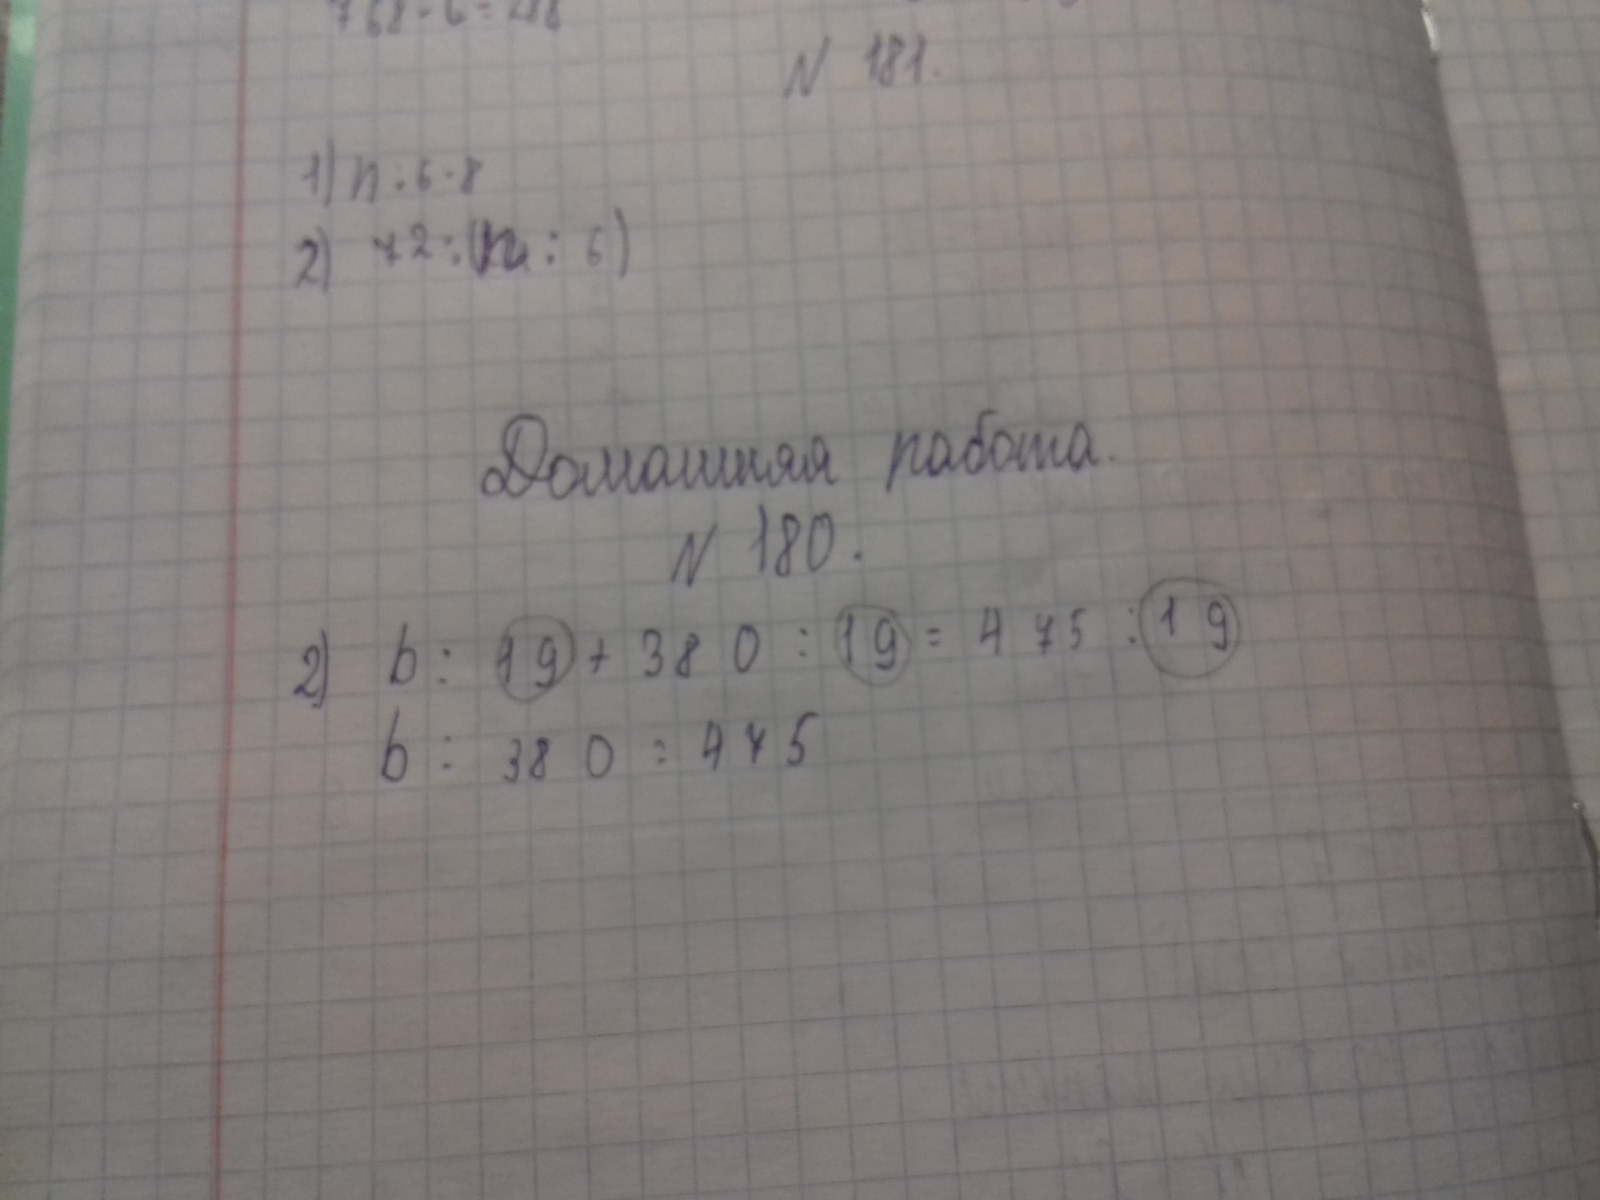 N 181.
1) n·6·8
2) 72:(n:6)
Домашняя работа.
N 180.
2) b: 19+380:19=475:19
b: 380=475